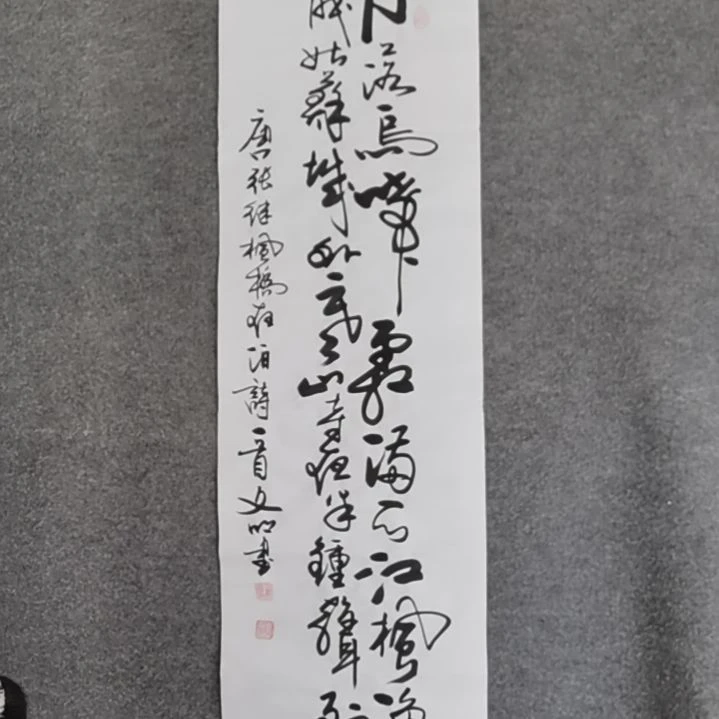 月落烏啼霜滿天江楓漁
眠姑蘇城外寒山寺夜半鐘聲到
唐張継楓橋夜泊詩一首文明書